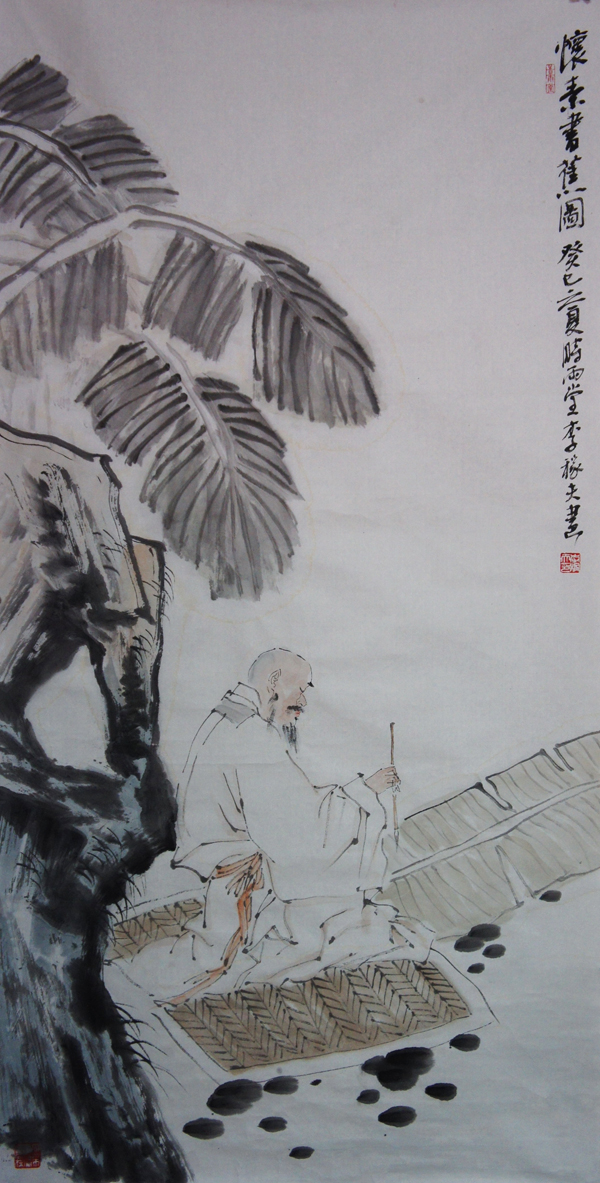 懷素書蕉圖 癸巳之夏時雨堂李稼夫畫